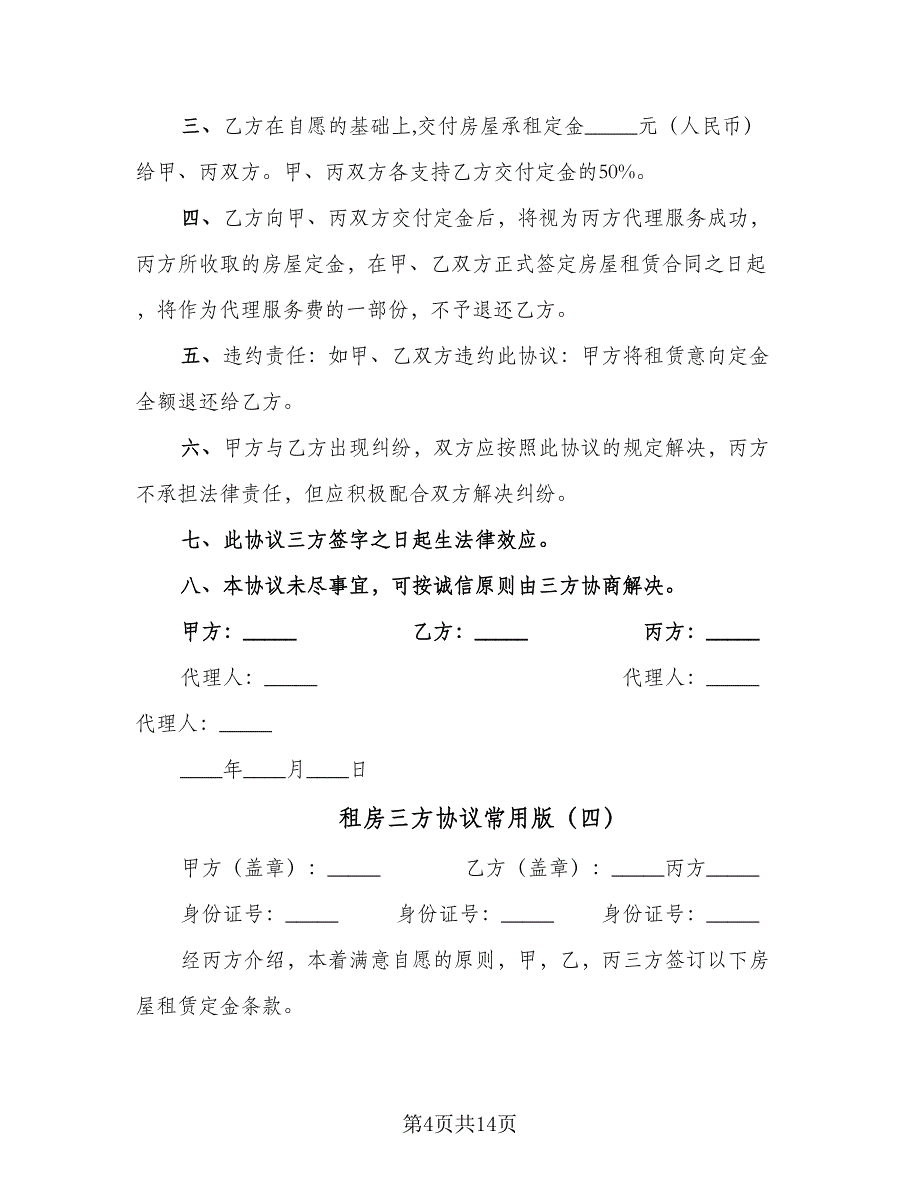 三、乙方在自愿的基础上,交付房屋承租定金_____元（人民币）
给甲、丙双方。甲、丙双方各支持乙方交付定金的50%。
四、乙方向甲、丙双方交付定金后，将视为丙方代理服务成功，
丙方所收取的房屋定金，在甲、乙双方正式签定房屋租赁合同之日起
，将作为代理服务费的一部份，不予退还乙方。
五、违约责任：如甲、乙双方违约此协议：甲方将租赁意向定金
全额退还给乙方。
六、甲方与乙方出现纠纷，双方应按照此协议的规定解决，丙方
不承担法律责任，但应积极配合双方解决纠纷。
七、此协议三方签字之日起生法律效应。
八、本协议未尽事宜，可按诚信原则由三方协商解决。
甲方：_____ 乙方：_____ 丙方：_____
代理人：_____ 代理人：_____
代理人：_____
____年____月____日
租房三方协议常用版（四）
甲方（盖章）：_____ 乙方（盖章）：_____丙方_____
身份证号：_____ 身份证号：_____ 身份证号：_____
经丙方介绍，本着满意自愿的原则，甲，乙，丙三方签订以下房
屋租赁定金条款。
第4页共14页